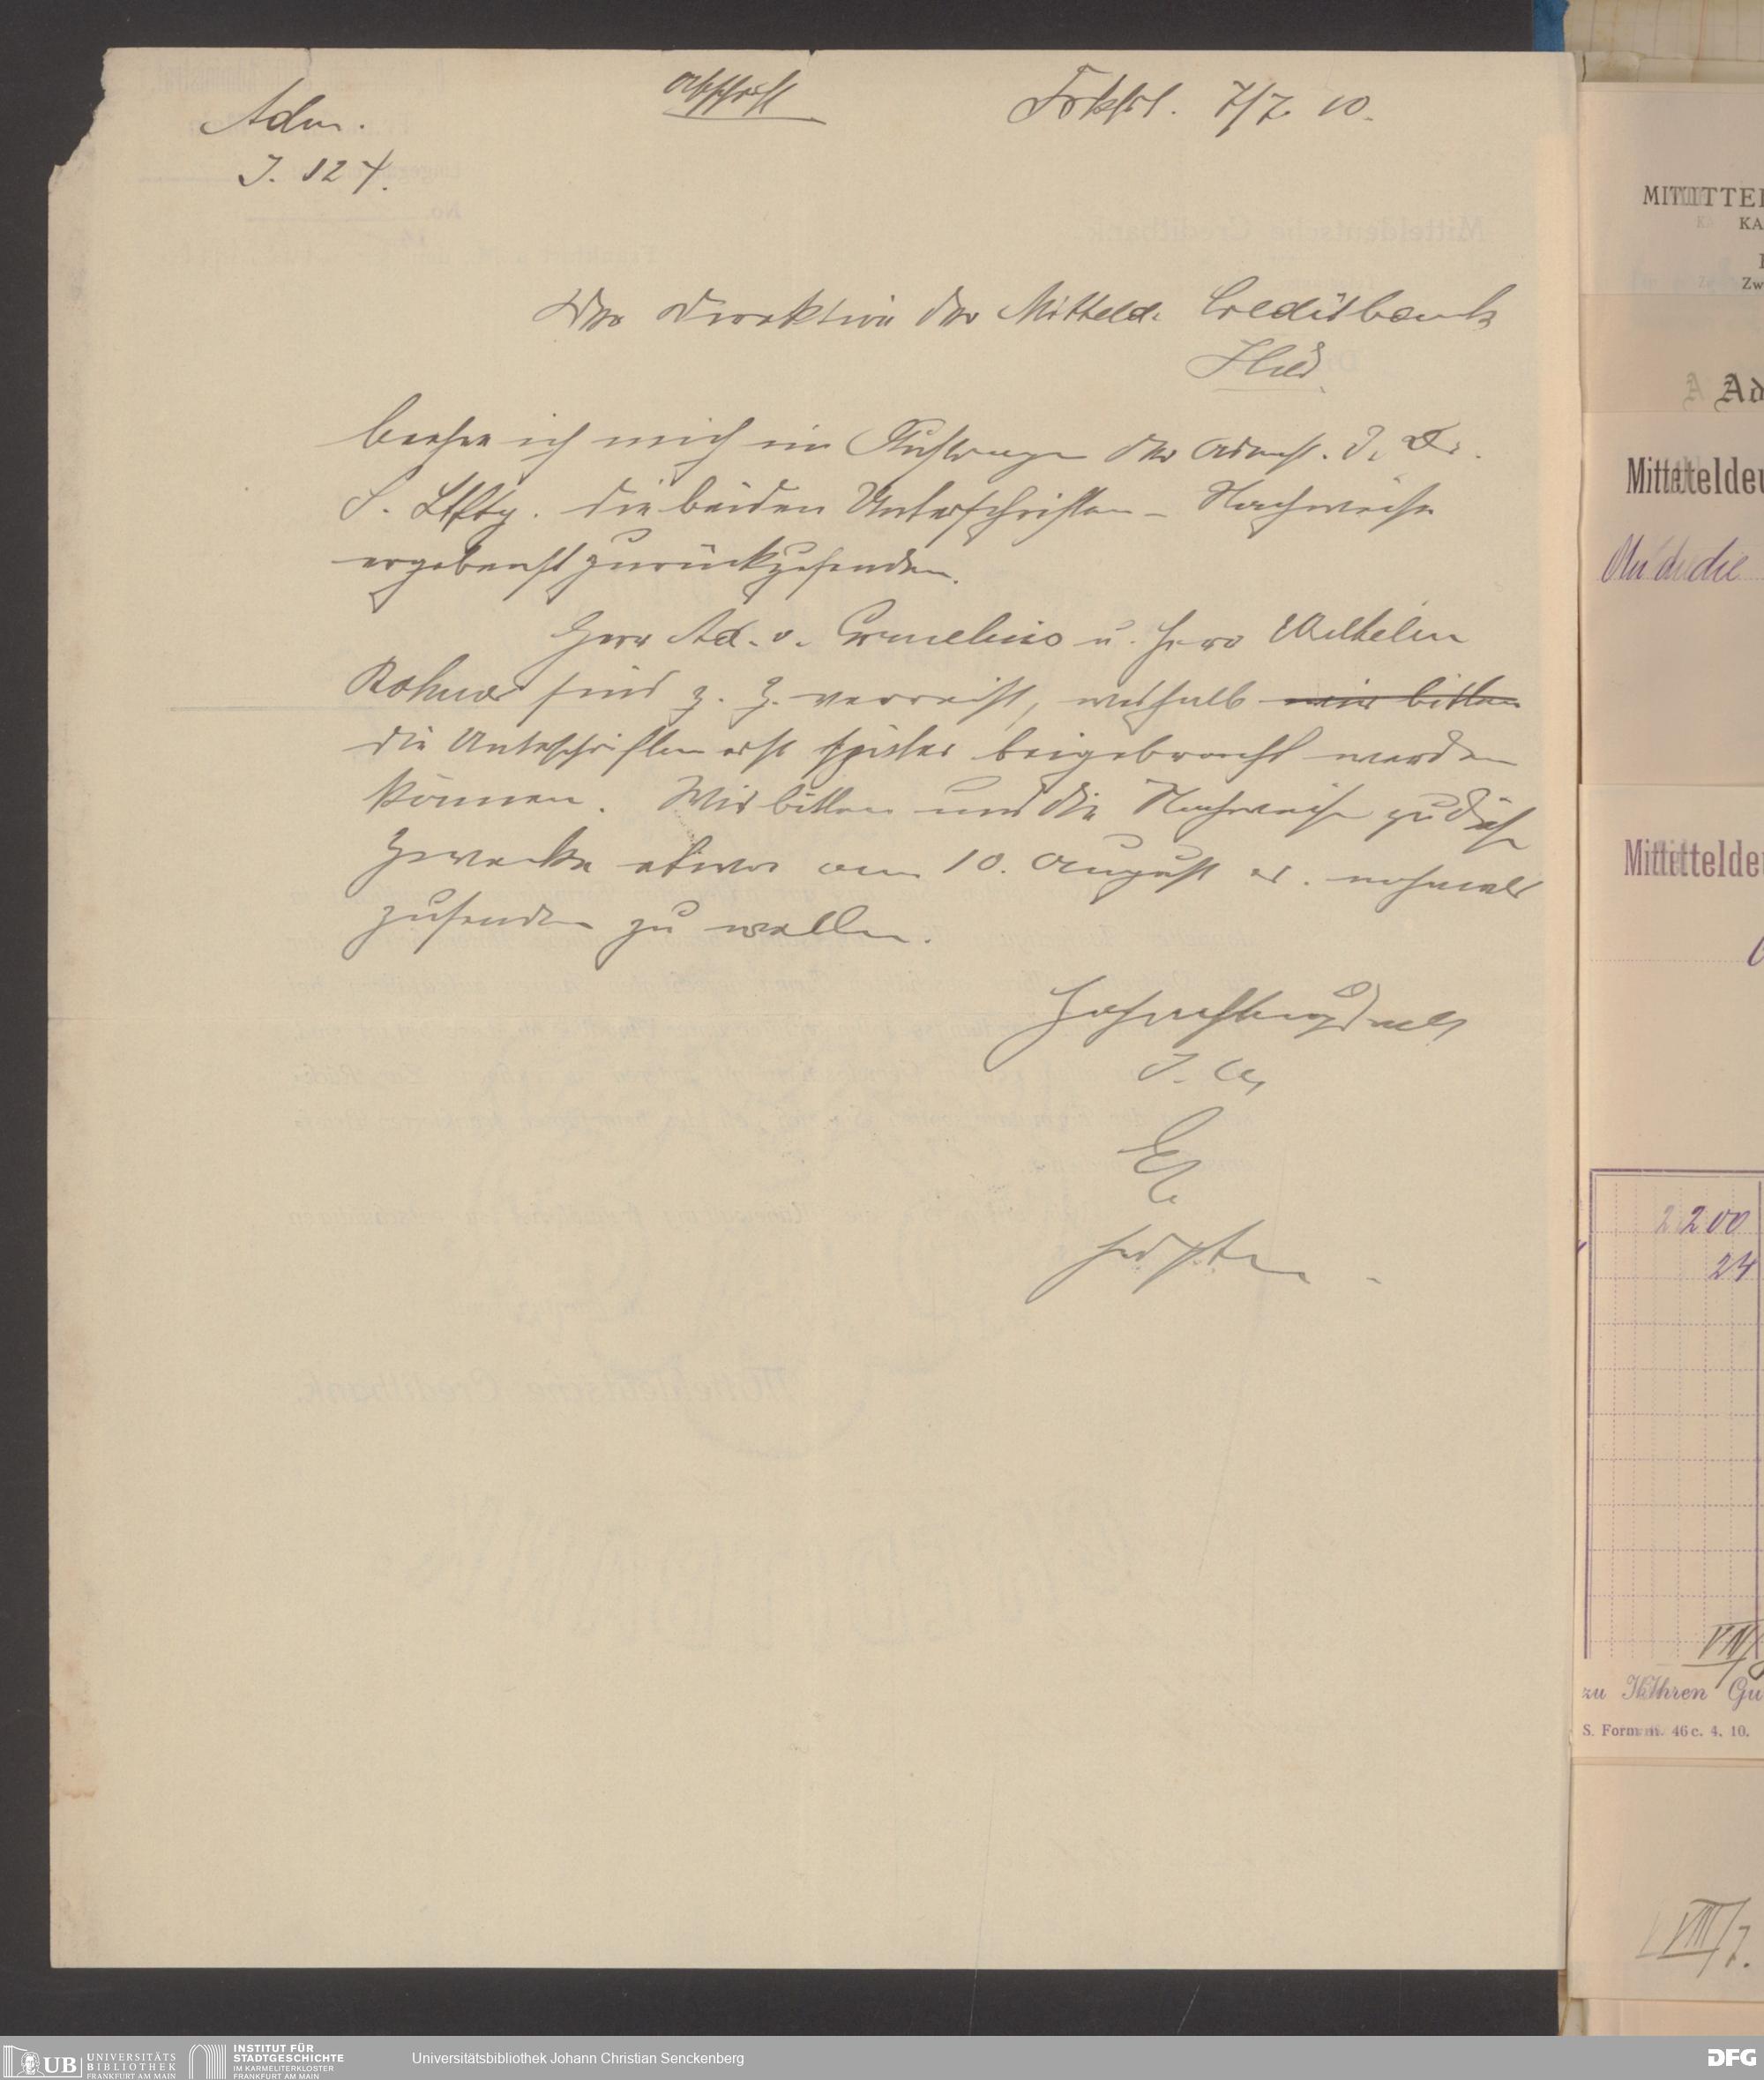 Adm.
J. 124.
Abschrift
Frkfrt. 7/7. 10.
Der Direktion der Mitteld. Creditbank
Hier
beehre ich mich im Auftrage der Administ. d. Dr.
S. Stftg. die beiden Unterschriften - Nachweise
ergebenst zurückzusenden.
Herr Ad. v. Cornelius u. Herr Wilhelm
Rohmer sind z. Z. verreist, weshalb wir bitten
die Unterschriften erst später beigebracht werden
können. Wir bitten uns die Nachweise zu diese
Zwecke etwa am 10. August cr. nochmals
zusenden zu wollen.
Hochachtungsvoll
I. A.
MITTEL
KA
Zw
Ad
Mitteldeu
die
Mitteldeu
200
24
VIII
zu Ihren Gu
S. Form. 46c. 4. 10.
VIII/7.
UB UNIVERSITÄTS
BIBLIOTHEK
FRANKFURT AM MAIN
INSTITUT FÜR
STADTGESCHICHTE
IM KARMELITERKLOSTER
FRANKFURT AM MAIN
Universitätsbibliothek Johann Christian Senckenberg
DFG